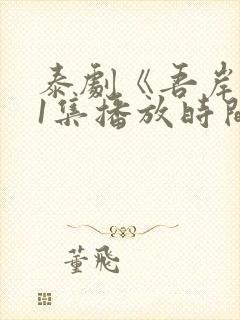 泰劇《吾岸
1集播放時間
董飛